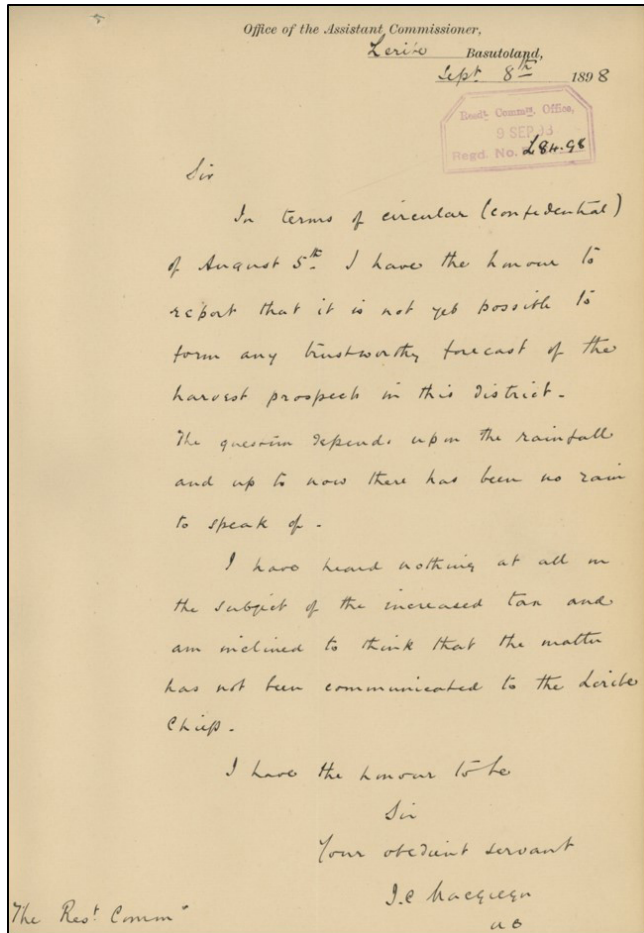 Office of the Assistant Commissioner,
Leribe Basutoland,
Sept. 8th 1898
Resdt. Commrs. Office,
9 SEP 93
Regd. No. L84.98
Sir
In terms of circular (confidential)
of August 5th. I have the honour to
report that it is not yet possible to
form any trustworthy forecast of the
harvest prospects in this district.
The question depends upon the rainfall
and up to now there has been no rain
to speak of.
I have heard nothing at all on
the subject of the increased tax and
am inclined to think that the matter
has not been communicated to the Leribe
Chiefs.
I have the honour to be
Sir
Your obedient servant
J.C Macgregor
The Rest. Commr